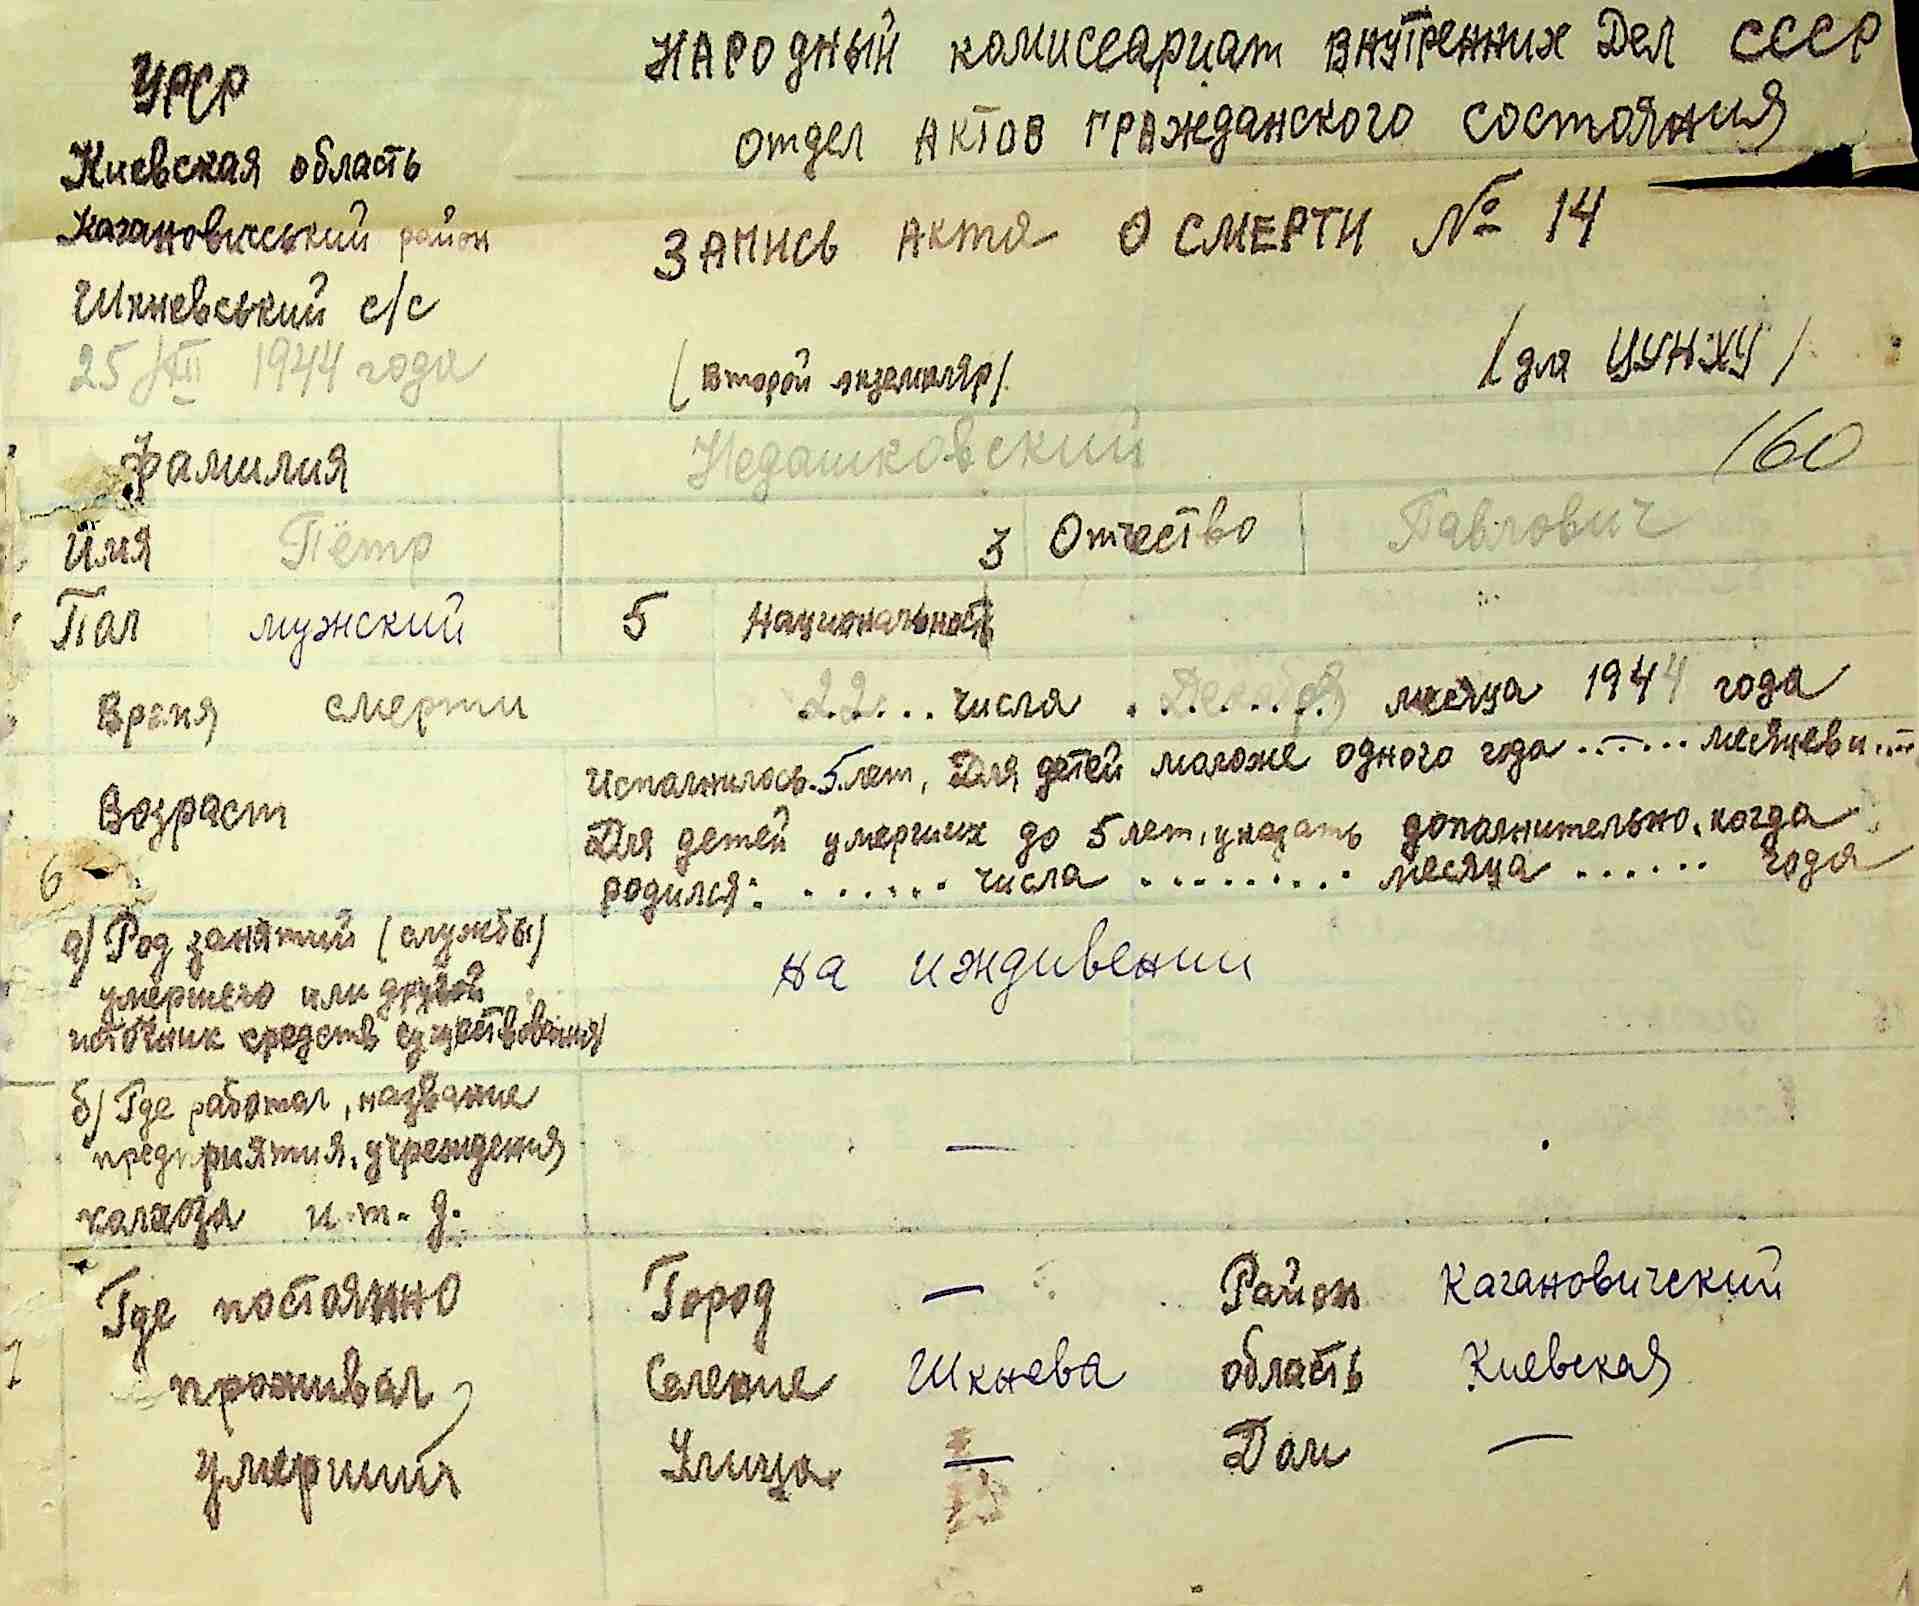 УРСР
НАРОдНЫЙ комиссариат ВНУТРЕННИХ Дел СССР
отдел АКТОВ ГРАжданского состояния
Киевская область
Кагановичський район
ЗАПИСЬ Акта О СМЕРТИ № 14
Шкневський с/с
25/XII 1944 года
(второй экземпляр)
/для ЦУНХУ/
160
Фамилия Недашковский
Имя Пётр 3 Отчество Павлович
Пол мужский 5 Национальность
Время смерти 22 числа Декабря месяца 1944 года
Возраст
Исполнилось 5 лет, Для детей моложе одного года ...—... месяцев и ...—
Для детей умерших до 5 лет, указать дополнительно, когда
родился: ...... числа ......... месяца ...... года
6
а) Род занятий (службы)
умершего или другой
источник средств существования
на иждивении
б) Где работал, название
предприятия, учреждения
колхоза и т. д.
—
7
Где постоянно
проживал
умерший
Город — Район Кагановичский
Селение Шкнева область Киевская
Улица — Дом —